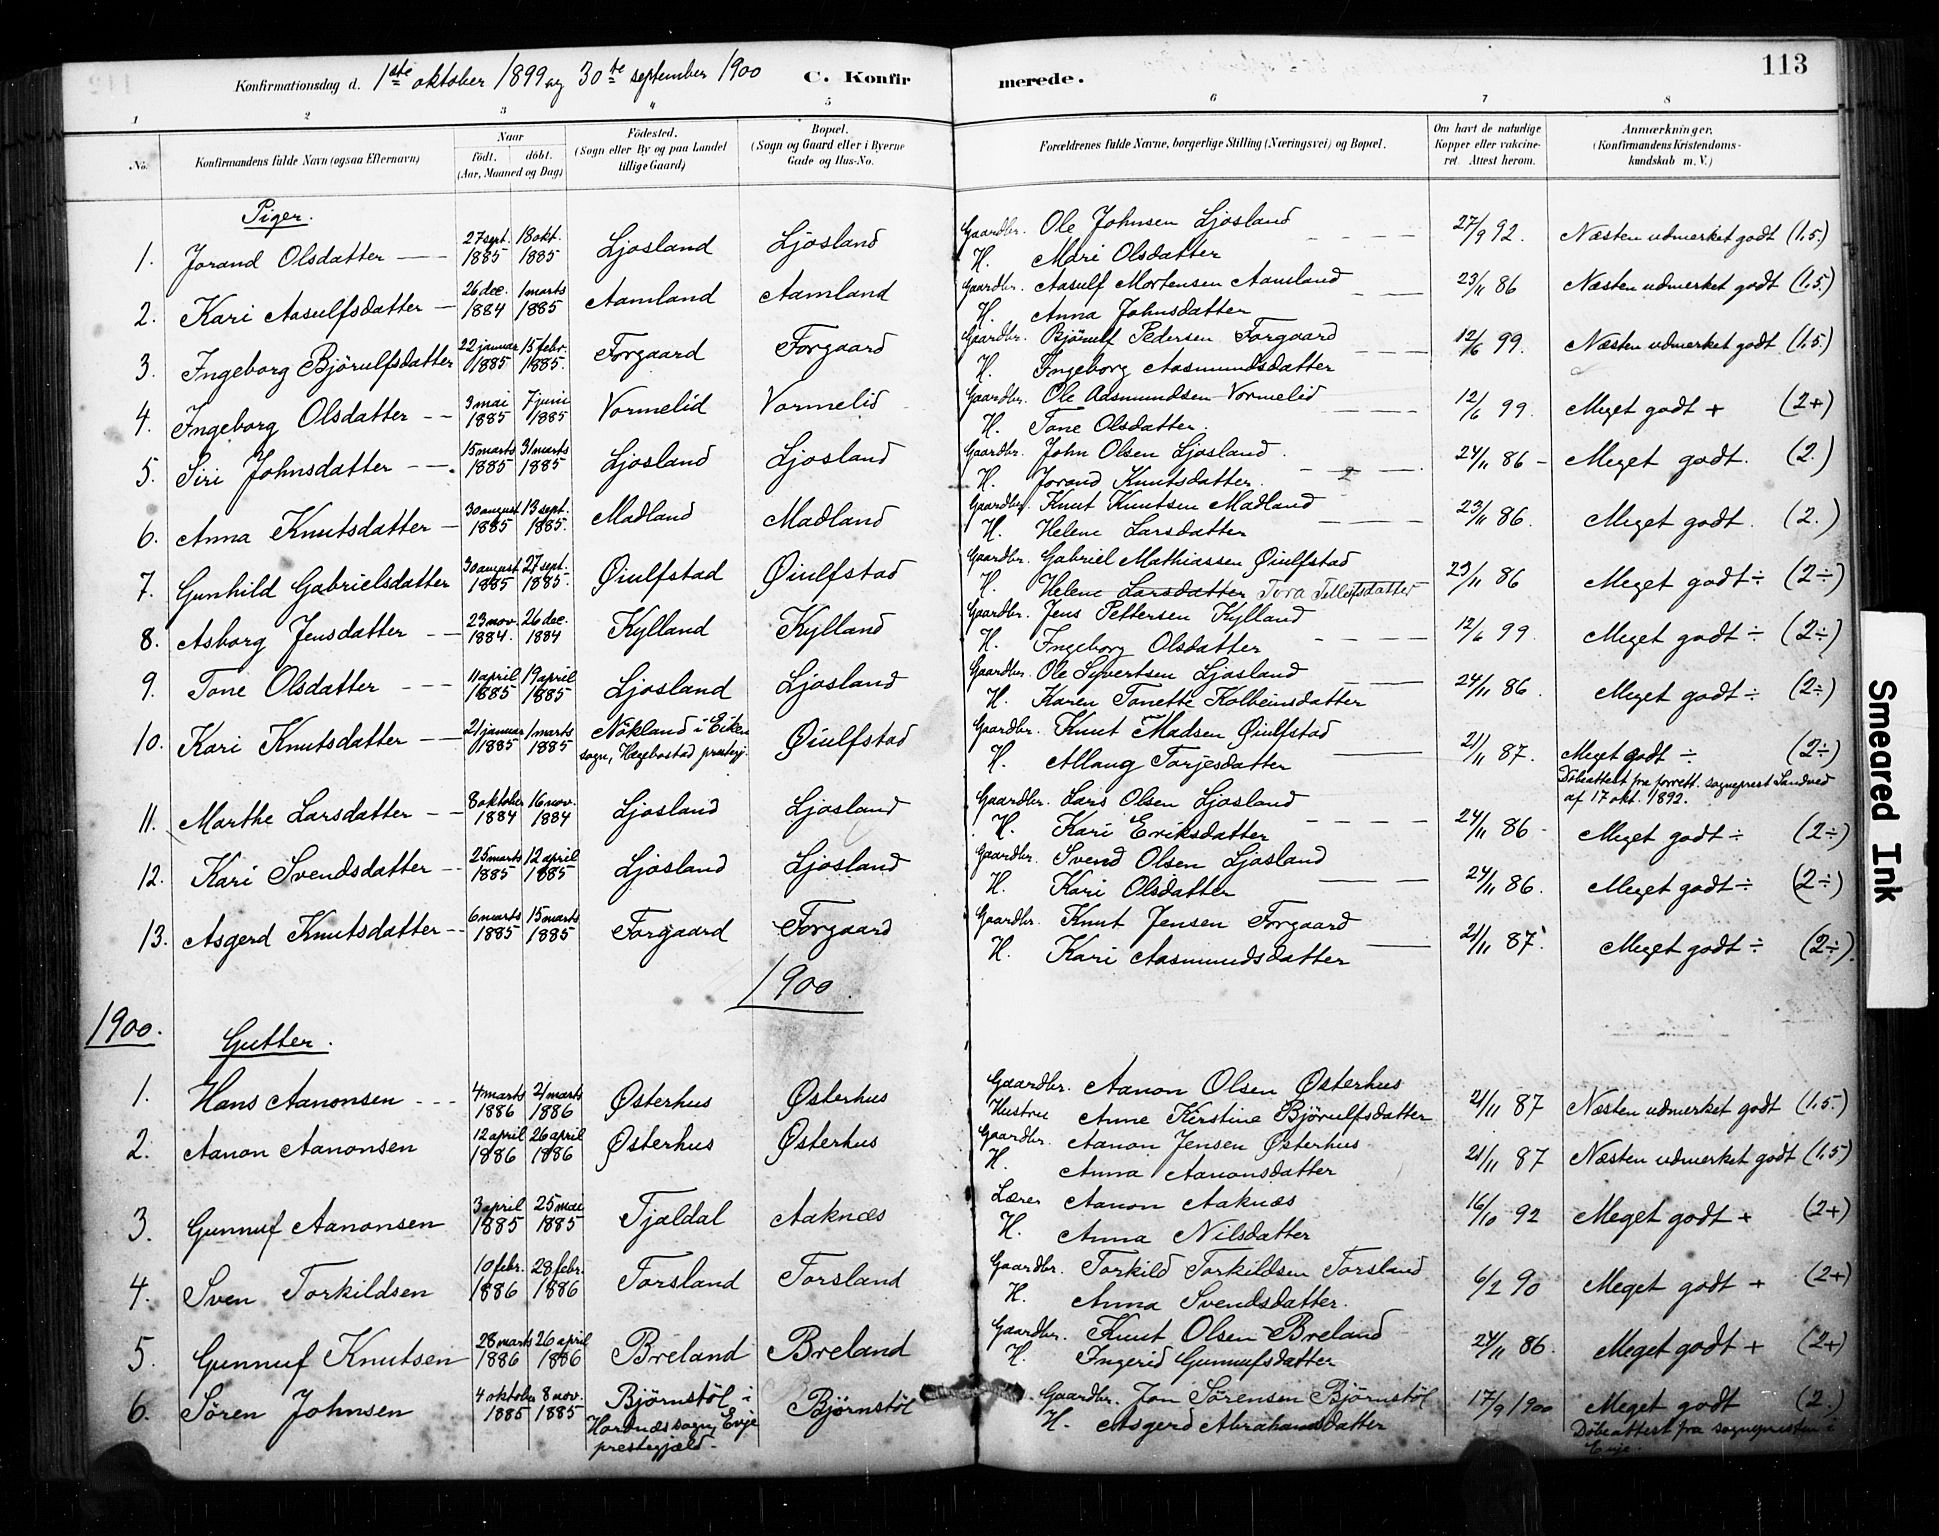 Konfirmationsdag d. 1ste oktober 1899 og 30te september 1900 C. Konfirmerede. 113
1 2 3 4 5 6 7 8
No. Konfirmandens fulde Navn (ogsaa Efternavn) Naar født. døbt. (Aar, Maaned og Dag) Fødested. (Sogn eller By og paa Landet tillige Gaard) Bopæl. (Sogn og Gaard eller i Byerne Gade og Hus-No. Forældrenes fulde Navne, borgerlige Stilling (Næringsvei) og Bopæl. Om havt de naturlige Kopper eller vakcineret. Attest herom. Anmærkninger. (Konfirmandens Kristendomskundskab m. V.)
Piger.
1. Jorand Olsdatter 27 sept. 1885 18 okt. 1885 Ljosland Ljosland Gaardbr. Ole Johnsen Ljosland 27/9 92. Næsten udmerket godt (1,5.)
H. Mari Olsdatter
2. Kari Aasulfsdatter 26 dec. 1884 1 marts 1885 Aamland Aamland Gaardbr. Aasulf Mortensen Aamland 23/11 86 Næsten udmerket godt (1,5.)
H. Anna Johnsdatter
3. Ingeborg Bjørulfsdatter 22 januar 1885 15 febr. 1885. Forgaard Forgaard Gaardbr. Bjørulf Pedersen Forgaard 12/6 99. Næsten udmerket godt (1,5.)
H. Ingeborg Aasmundsdatter
4. Ingeborg Olsdatter 3 mai 1885 7 juni 1885 Vormelid Vormelid Gaardbr. Ole Aasmundsen Vormelid 12/6 99. Meget godt + (2+)
H. Tone Olsdatter.
5. Siri Johnsdatter 15 marts 1885 31 marts 1885 Ljosland Ljosland Gaardbr. John Olsen Ljosland 24/11 86 Meget godt. (2.)
H. Jorand Knutsdatter.
6. Anna Knutsdatter 30 august 1885 13 sept. 1885. Madland Madland Gaardbr. Knut Knutsen Madland 23/11 86. Meget godt. (2.)
H. Helene Larsdatter
7. Gunhild Gabrielsdatter 30 august 1885 27 sept. 1885. Øiulfstad Øiulfstad Gaardbr. Gabriel Mathiassen Øiulfstad 23/11 86 Meget godt ÷ (2÷)
H. Helene Larsdatter Tora Tellefsdatter
8. Asborg Jensdatter 23 nov. 1884. 26 dec. 1884 Kylland Kylland Gaardbr. Jens Pettersen Kylland 12/6 99. Meget godt ÷ (2÷)
H. Ingeborg Olsdatter
9. Tone Olsdatter 11 april 1885 19 april 1885 Ljosland Ljosland Gaardbr. Ole Syvertsen Ljosland 24/11 86. Meget godt ÷ (2÷)
H. Karen Tonette Kolbeinsdatter
10. Kari Knutsdatter 21 januar 1885 1 marts 1885 Nökland i Eiken sogn, Hægebostad prestegj. Øiulfstad Gaardbr. Knut Madsen Øiulfstad 21/11 87. Meget godt ÷ (2÷)
H. Allaug Torjesdatter Döbeattest fra forrett. sogneprest Sandved af 17 okt. 1892.
11. Marthe Larsdatter 8 oktober 1884 16 nov. 1884 Ljosland Ljosland Gaardbr. Lars Olsen Ljosland 24/11 86 Meget godt ÷ (2÷)
H. Kari Eriksdatter
12. Kari Svendsdatter 25 marts 1885 12 april 1885 Ljosland Ljosland Gaardbr. Svend Olsen Ljosland 24/11 86. Meget godt ÷ (2÷)
H. Kari Olsdatter
13. Asgerd Knutsdatter 6 marts 1885 15 marts 1885 Forgaard Forgaard Gaardbr. Knut Jensen Forgaard 21/11 87. Meget godt ÷ (2÷).
H. Kari Aasmundsdatter
1900.
1900.
Gutter.
1. Hans Aanonsen 4 marts 1886 21 marts 1886 Østerhus Østerhus Gaardbr. Aanon Olsen Østerhus 21/11 87 Næsten udmerket godt (1,5.)
Hustru Anne Kirstine Bjørulfsdatter
2. Aanon Aanonsen 12 april 1886 26 april 1886 Østerhus Østerhus Gaardbr. Aanon Jensen Østerhus 21/11 87 Næsten udmerket godt (1,5)
H. Anna Aanonsdatter
3. Gunnuf Aanonsen 3 april 1885 25 mai 1885 Tjaldal Aaknæs Lærer Aanon Aaknæs 16/10 92 Meget godt + (2+)
H. Anna Nilsdatter
4. Sven Torkildsen 10 febr. 1886 28 febr. 1886 Forsland Forsland Gaardbr. Torkild Torkildsen Forsland 6/2 90 Meget godt + (2+)
H. Anna Svendsdatter.
5. Gunnuf Knutsen 28 marts 1886 26 april 1886 Breland Breland Gaardbr. Knut Olsen Breland 24/11 86. Meget godt + (2+)
H. Ingerid Gunnufsdatter
6. Sören Johnsen 4 oktober 1885 8 nov. 1885 Björnstöl i Hordnæs sogn, Evje prestegjæld. Björnstöl Gaardbr. Jon Sörensen Björnstöl 17/9 1900 Meget godt (2.)
H. Asgerd Abrahamsdatter Döbeattest fra sognepresten i Evje.
Smeared Ink